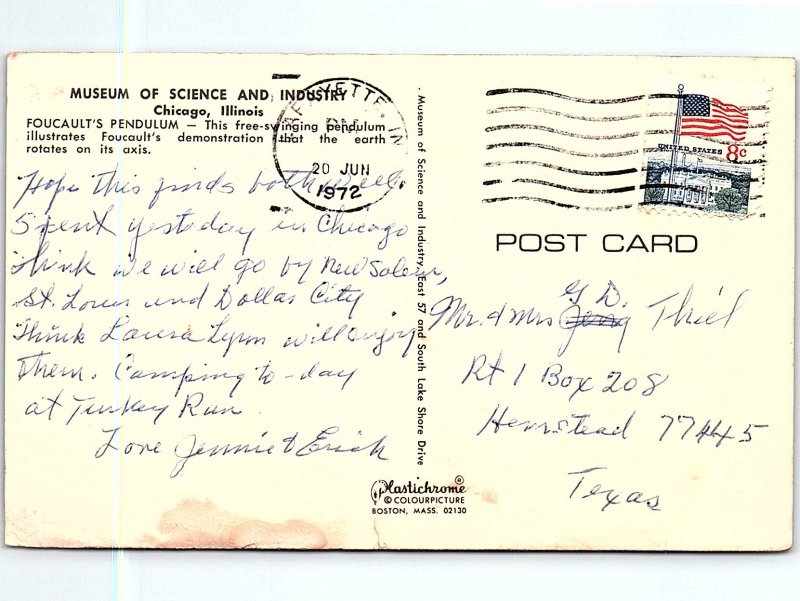 MUSEUM OF SCIENCE AND INDUSTRY
Chicago, Illinois
FOUCAULT'S PENDULUM — This free-swinging pendulum
illustrates Foucault's demonstration that the earth
rotates on its axis.
Hope this finds both well.
Spent yesterday in Chicago
think we will go by New Salem,
St. Louis and Dollas City
Think Laura Lynn will enjoy
them. Camping to-day
at Turkey Run.
Love Jennie & Erich
Museum of Science and Industry, East 57 and South Lake Shore Drive
Plastichrome®
© COLOURPICTURE
BOSTON, MASS. 02130
LAFAYETTE, IN
PM
20 JUN
1972
UNITED STATES 8c
POST CARD
G. D.
Mr. & Mrs Jerry Thiel
Rt 1 Box 208
Hemstead 77445
Texas